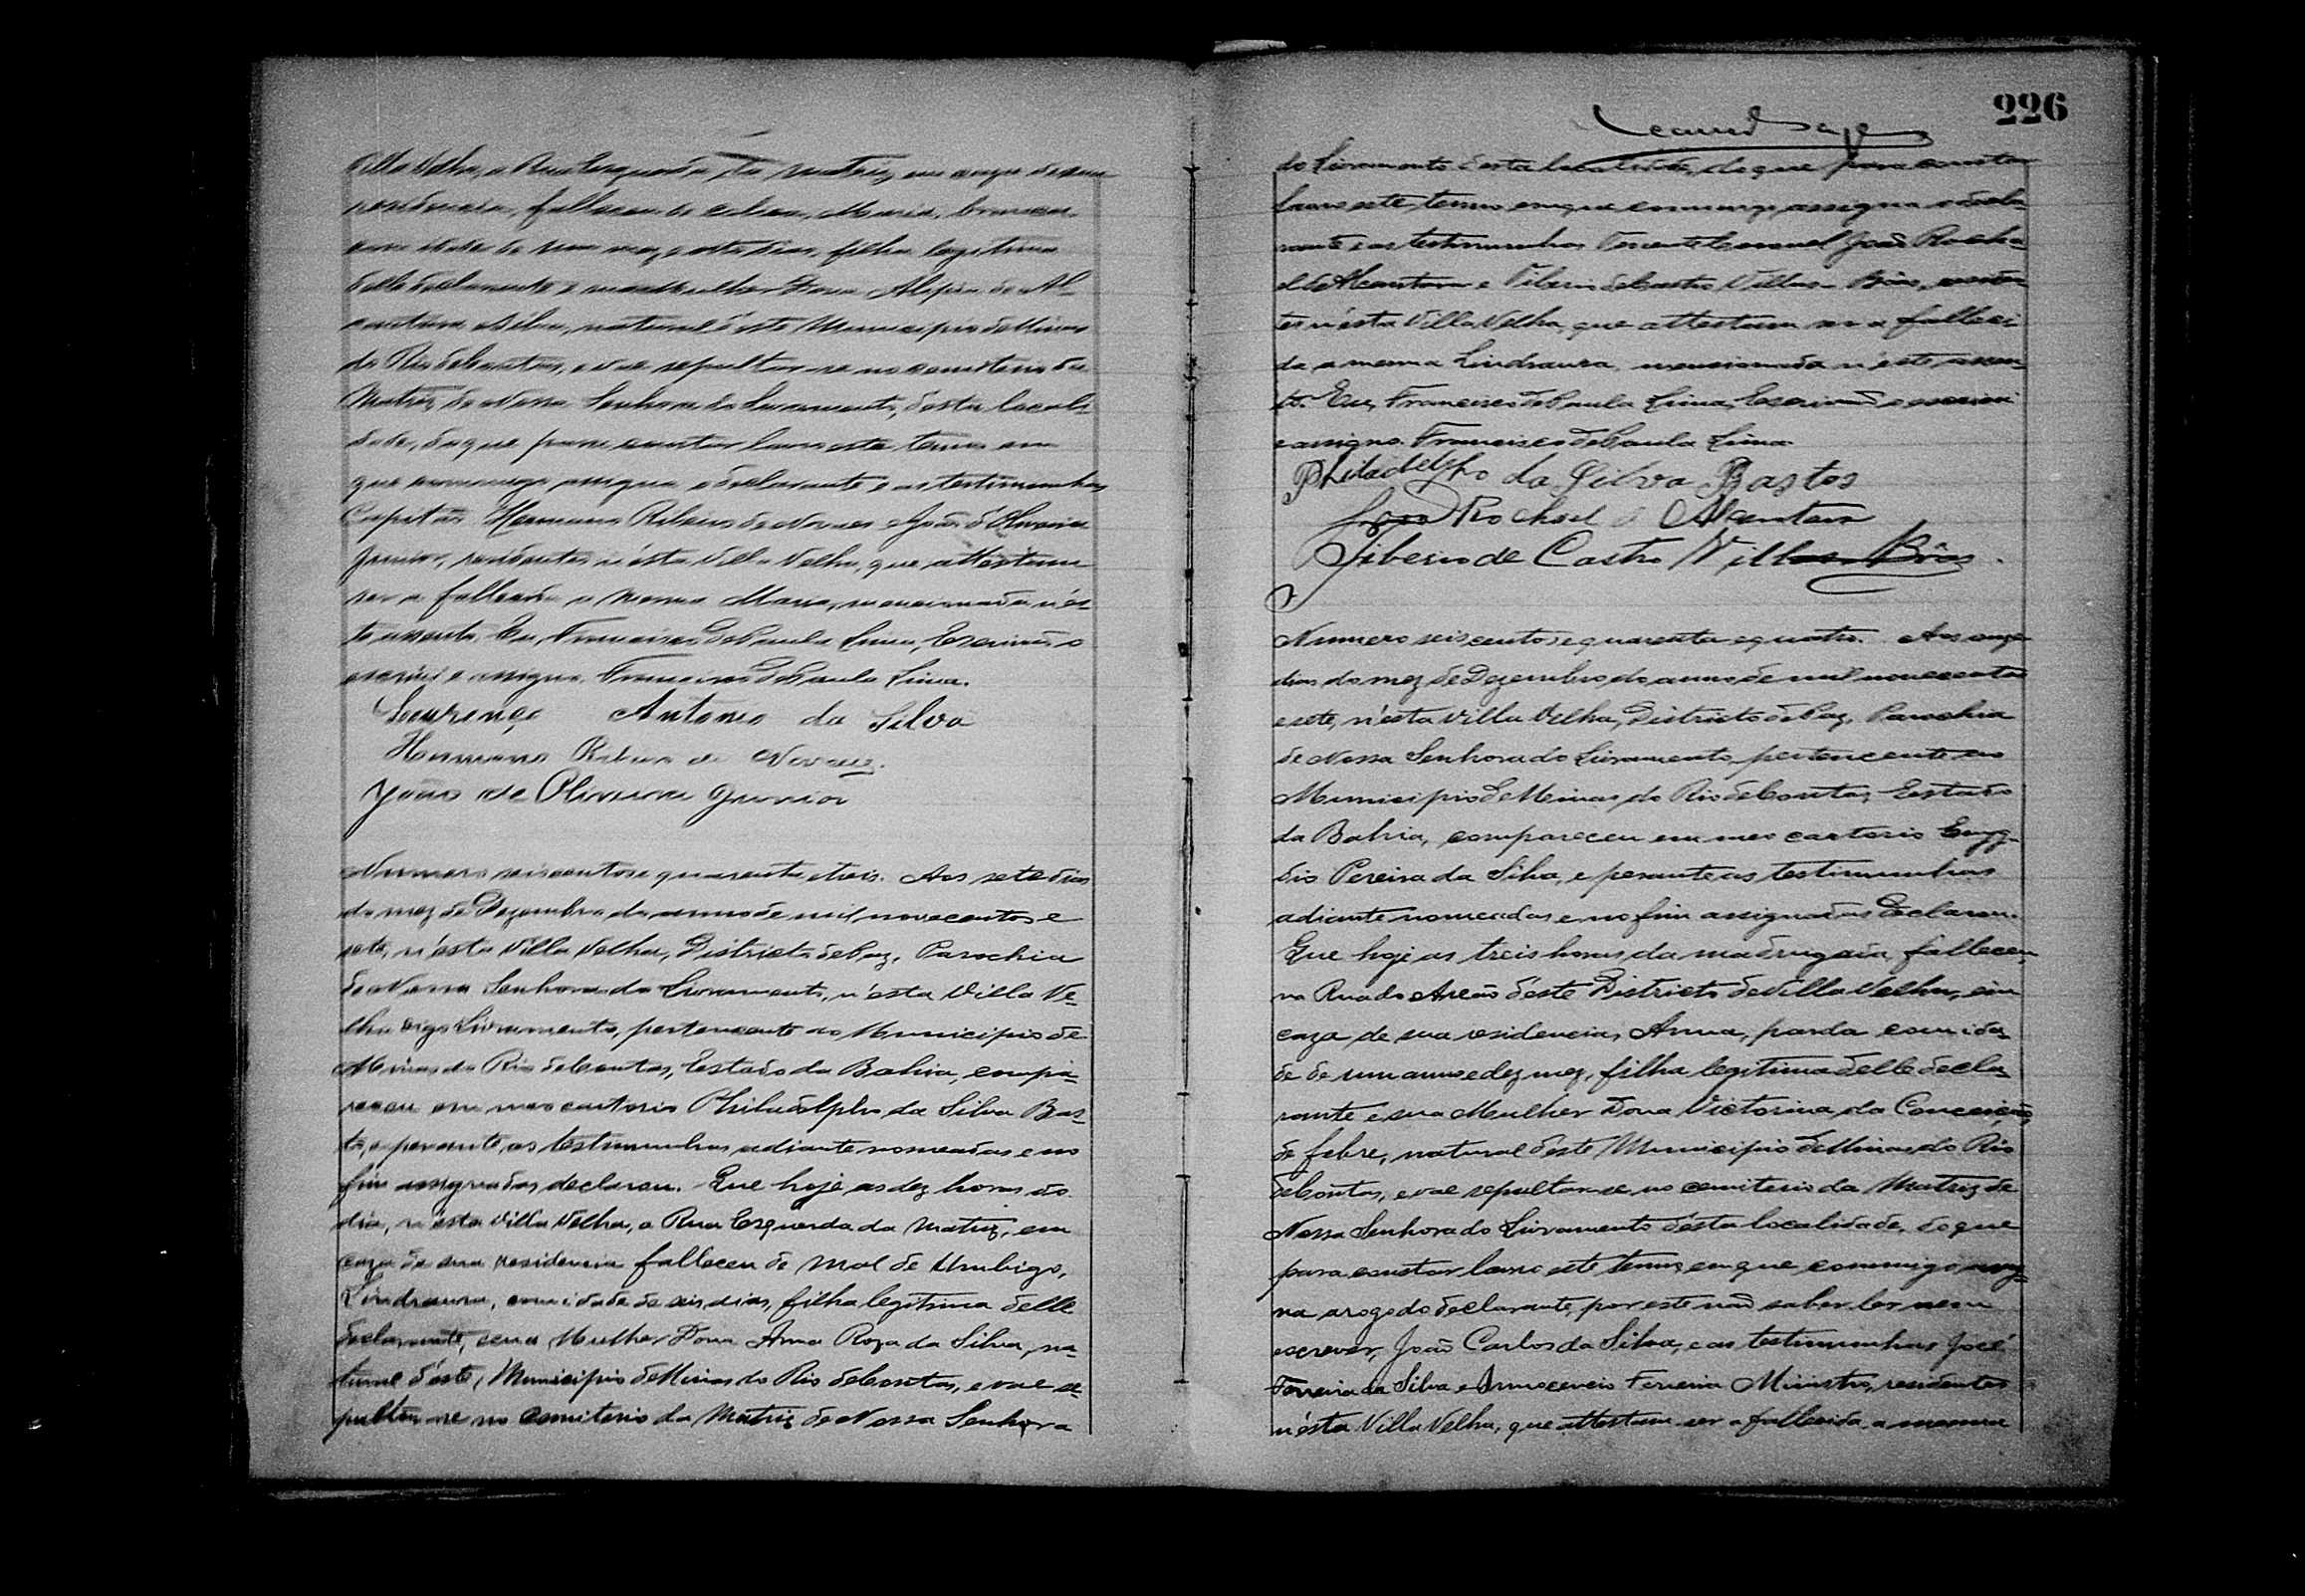 Villa Velha, a Rua Esquerda da Matriz, em caza de sua
residencia, falleceu de Maria, branca,
com idade de um mez e oito dias, filha legitima
delle declarante e sua mulher Dona Alipia de Al-
cantara e Silva, natural d'este Municipio de Minas
do Rio de Contas, e vae sepultar-se no cemiterio da
Matriz de Nossa Senhora do Livramento, desta locali-
dade, do que para constar lavro este termo em
que commigo assigna o declarante e as testimunhas
Capitão Hermano Ribeiro de Novaes e João d'Oliveira
Junior, residentes n'esta Villa Velha, que attestam
ser a fallecida a mesma Maria, mencionada n'es-
te assento. Eu, Francisco de Paula Lima, Escrivão o
escrivi e assigno. Francisco de Paula Lima.
Lourenço Antonio da Silva
Hermano Ribeiro de Novaes.
João de Oliveira Junior
Numero seiscentos e quarenta e treis. Aos sete dias
do mez de Dezembro do anno de mil novecentos e
sete, n'esta Villa Velha, Districto de Paz, Parochia
de Nossa Senhora do Livramento, n'esta Villa Ve-
lha digo Livramento, pertencente ao Municipio de
Minas do Rio de Contas, Estado da Bahia, compa-
receu em meo cartorio Philadelpho da Silva Bas-
tos, e perante as testimunhas adiante nomeadas e no
fim assignadas declarou. Que hoje as dez horas do
dia, n'esta Villa Velha, a Rua Esquerda da Matriz, em
caza de sua residencia falleceu de mal de Umbigo,
Lindraura, com idade de seis dias, filha legitima delle
declarante, e sua Mulher Dona Anna Roza da Silva, na-
tural d'este Municipio de Minas do Rio de Contas, e vae se-
pultar-se no Cemiterio da Matriz de Nossa Senhora
226
do Livramento desta localidade, do que para constar
lavro este termo em que commigo assigna o decla-
rante e as testimunhas Tenente Coronel João Rocha-
el de Alcantara e Tiberio de Castro Villas-Bôas, residen-
tes n'esta Villa Velha, que attestam ser a falleci-
da a mesma Lindraura, mencionada n'este assen-
to. Eu, Francisco de Paula Lima, Escrivão o escrivi
e assigno. Francisco de Paula Lima.
Philadelpho da Silva Bastos
João Rochael d Alcantara
Tiberio de Castro Villas-Bôas.
Numero seiscentos e quarenta e quatro. Aos onze
dias do mez de Dezembro do anno de mil novecentos
e sete, n'esta Villa Velha, Districto de Paz, Parochia
de Nossa Senhora do Livramento pertencente ao
Municipio de Minas do Rio de Contas, Estado
da Bahia, compareceu em meo cartorio Emyg-
dio Pereira da Silva, e perante as testimunhas
adiante nomeadas e no fim assignadas declarou.
Que hoje as treis horas da madrugada, falleceu,
na Rua do Areão d'este Districto de Villa Velha, em
caza de sua residencia, Anna, parda com ida-
de de um anno e dez mez, filha legitima delle decla-
rante e sua Mulher Dona Victorina da Conceição,
de febre, natural d'este Municipio de Minas do Rio
de Contas, e vae sepultar-se no cemiterio da Matriz de
Nossa Senhora do Livramento d'esta localidade, do que
para constar lavro este termo, em que commigo assig-
na a rogo do declarante, por este não saber ler nem
escrever, João Carlos da Silva, e as testimunhas José
Ferreira da Silva e Innocencio Ferreira Ministro, residentes
n'esta Villa Velha, que attestam ser a fallecida a mesma